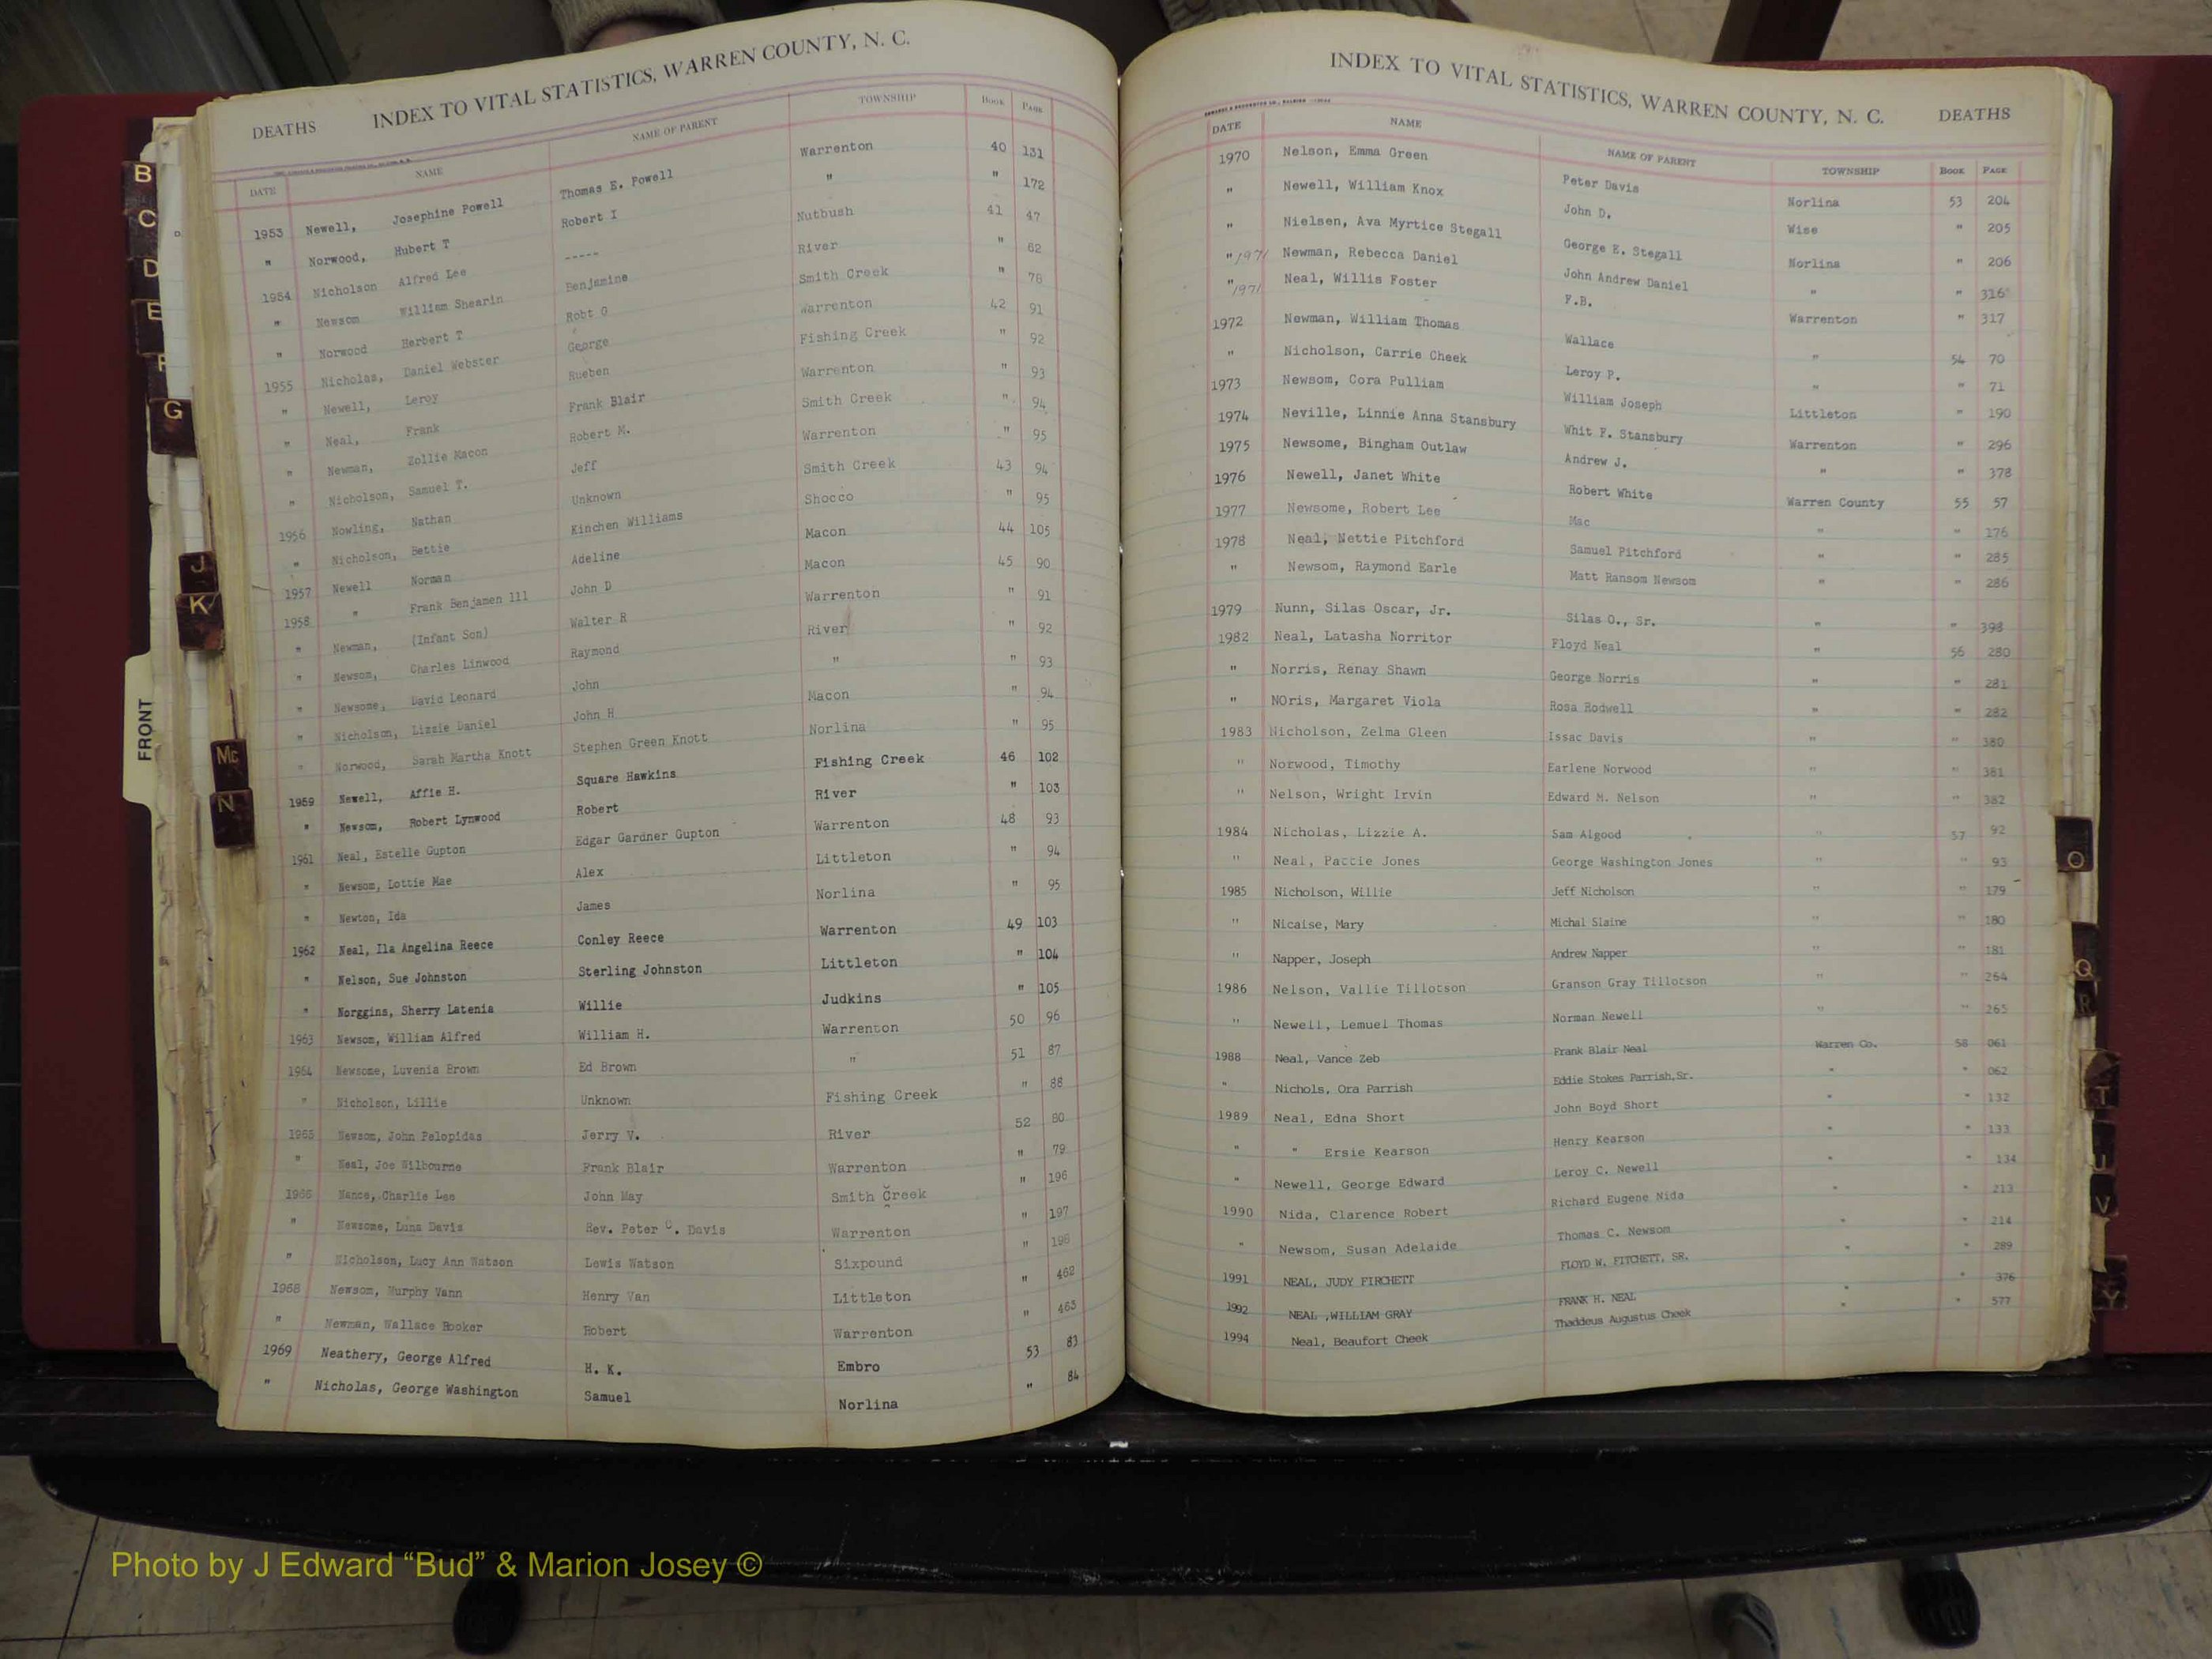 DEATHS INDEX TO VITAL STATISTICS, WARREN COUNTY, N. C.
DATE NAME NAME OF PARENT TOWNSHIP BOOK PAGE
1953 Newell, Josephine Powell Thomas E. Powell Warrenton 40 131
" Norwood, Hubert T Robert I " " 172
1954 Nicholson Alfred Lee ----- Nutbush 41 47
" Newsom William Shearin Benjamine River " 62
" Norwood Herbert T Robt O Smith Creek " 78
1955 Nicholas, Daniel Webster George Warrenton 42 91
" Newell, Leroy Rueben Fishing Creek " 92
" Neal, Frank Frank Blair Warrenton " 93
" Newman, Zollie Macon Robert M. Smith Creek " 94
" Nicholson, Samuel T. Jeff Warrenton " 95
1956 Nowling, Nathan Unknown Smith Creek 43 94
" Nicholson, Bettie Kinchen Williams Shocco " 95
1957 Newell Norman Adeline Macon 44 105
1958 " Frank Benjamen 111 John D Macon 45 90
" Newman, (Infant Son) Walter R Warrenton " 91
" Newsom, Charles Linwood Raymond River " 92
" Newsome, David Leonard John " " 93
" Nicholson, Lizzie Daniel John H Macon " 94
" Norwood, Sarah Martha Knott Stephen Green Knott Norlina " 95
1959 Newell, Affie H. Square Hawkins Fishing Creek 46 102
" Newsom, Robert Lynwood Robert River " 103
1961 Neal, Estelle Gupton Edgar Gardner Gupton Warrenton 48 93
" Newsom, Lottie Mae Alex Littleton " 94
" Newton, Ida James Norlina " 95
1962 Neal, Ila Angelina Reece Conley Reece Warrenton 49 103
" Nelson, Sue Johnston Sterling Johnston Littleton " 104
" Norggins, Sherry Latenia Willie Judkins " 105
1963 Newsom, William Alfred William H. Warrenton 50 96
1964 Newsome, Luvenia Brown Ed Brown " 51 87
" Nicholson, Lillie Unknown Fishing Creek " 88
1965 Newsom, John Pelopidas Jerry V. River 52 80
" Neal, Joe Wilbourne Frank Blair Warrenton " 79
1966 Nance, Charlie Lee John May Smith Creek " 196
" Newsome, Luna Davis Rev. Peter C. Davis Warrenton " 197
" Nicholson, Lucy Ann Watson Lewis Watson Sixpound " 198
1968 Newsom, Murphy Vann Henry Van Littleton " 462
" Newman, Wallace Rooker Robert Warrenton " 463
1969 Neathery, George Alfred H. K. Embro 53 83
" Nicholas, George Washington Samuel Norlina " 84
INDEX TO VITAL STATISTICS, WARREN COUNTY, N. C. DEATHS
DATE NAME NAME OF PARENT TOWNSHIP BOOK PAGE
1970 Nelson, Emma Green Peter Davis Norlina 53 204
" Newell, William Knox John D. Wise " 205
" Nielsen, Ava Myrtice Stegall George E. Stegall Norlina " 206
" 1971 Newman, Rebecca Daniel John Andrew Daniel " " 316
" 1971 Neal, Willis Foster F.B. Warrenton " 317
1972 Newman, William Thomas Wallace " 54 70
" Nicholson, Carrie Cheek Leroy P. " " 71
1973 Newsom, Cora Pulliam William Joseph Littleton " 190
1974 Neville, Linnie Anna Stansbury Whit F. Stansbury Warrenton " 296
1975 Newsome, Bingham Outlaw Andrew J. " " 378
1976 Newell, Janet White Robert White Warren County 55 57
1977 Newsome, Robert Lee Mac " " 176
1978 Neal, Nettie Pitchford Samuel Pitchford " " 285
" Newsom, Raymond Earle Matt Ransom Newsom " " 286
1979 Nunn, Silas Oscar, Jr. Silas O., Sr. " " 398
1982 Neal, Latasha Norritor Floyd Neal " 56 280
" Norris, Renay Shawn George Norris " " 281
" NOris, Margaret Viola Rosa Rodwell " " 282
1983 Nicholson, Zelma Gleen Issac Davis " " 380
" Norwood, Timothy Earlene Norwood " " 381
" Nelson, Wright Irvin Edward M. Nelson " " 382
1984 Nicholas, Lizzie A. Sam Algood " 57 92
" Neal, Pattie Jones George Washington Jones " " 93
1985 Nicholson, Willie Jeff Nicholson " " 179
" Nicaise, Mary Michal Slaine " " 180
" Napper, Joseph Andrew Napper " " 181
1986 Nelson, Vallie Tillotson Granson Gray Tillotson " " 264
" Newell, Lemuel Thomas Norman Newell " " 265
1988 Neal, Vance Zeb Frank Blair Neal Warren Co. 58 061
" Nichols, Ora Parrish Eddie Stokes Parrish,Sr. " " 062
1989 Neal, Edna Short John Boyd Short " " 132
" " Ersie Kearson Henry Kearson " " 133
" Newell, George Edward Leroy C. Newell " " 134
1990 Nida, Clarence Robert Richard Eugene Nida " " 213
" Newsom, Susan Adelaide Thomas C. Newsom " " 214
1991 NEAL, JUDY FIRCHETT FLOYD W. FITCHETT, SR. " " 289
1992 NEAL ,WILLIAM GRAY FRANK H. NEAL " " 376
1994 Neal, Beaufort Cheek Thaddeus Augustus Cheek " " 577
B
C
D
E
F
G
J
K
FRONT
Mc
N
O
Q
R
T
U
V
Y
Photo by J Edward “Bud” & Marion Josey ©